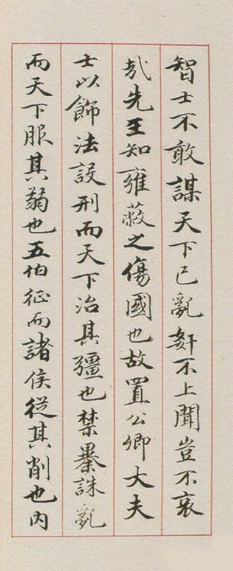 智士不敢謀天下已亂奸不上聞豈不哀
哉先王知雍蔽之傷國也故置公卿大夫
士以飾法設刑而天下治其彊也禁暴誅亂
而天下服其弱也五伯征而諸侯從其削也内